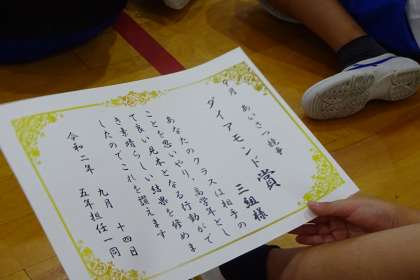 ９月　あいさつ続事
ダイアモンド賞
三組様
あなたのクラスは相手の
ことを思いやり、高学年とし
て良い見本となる行動がで
き素晴らしい結果を修めま
したのでこれを讃えます
令和二年　九月　十四日
五年担任一同